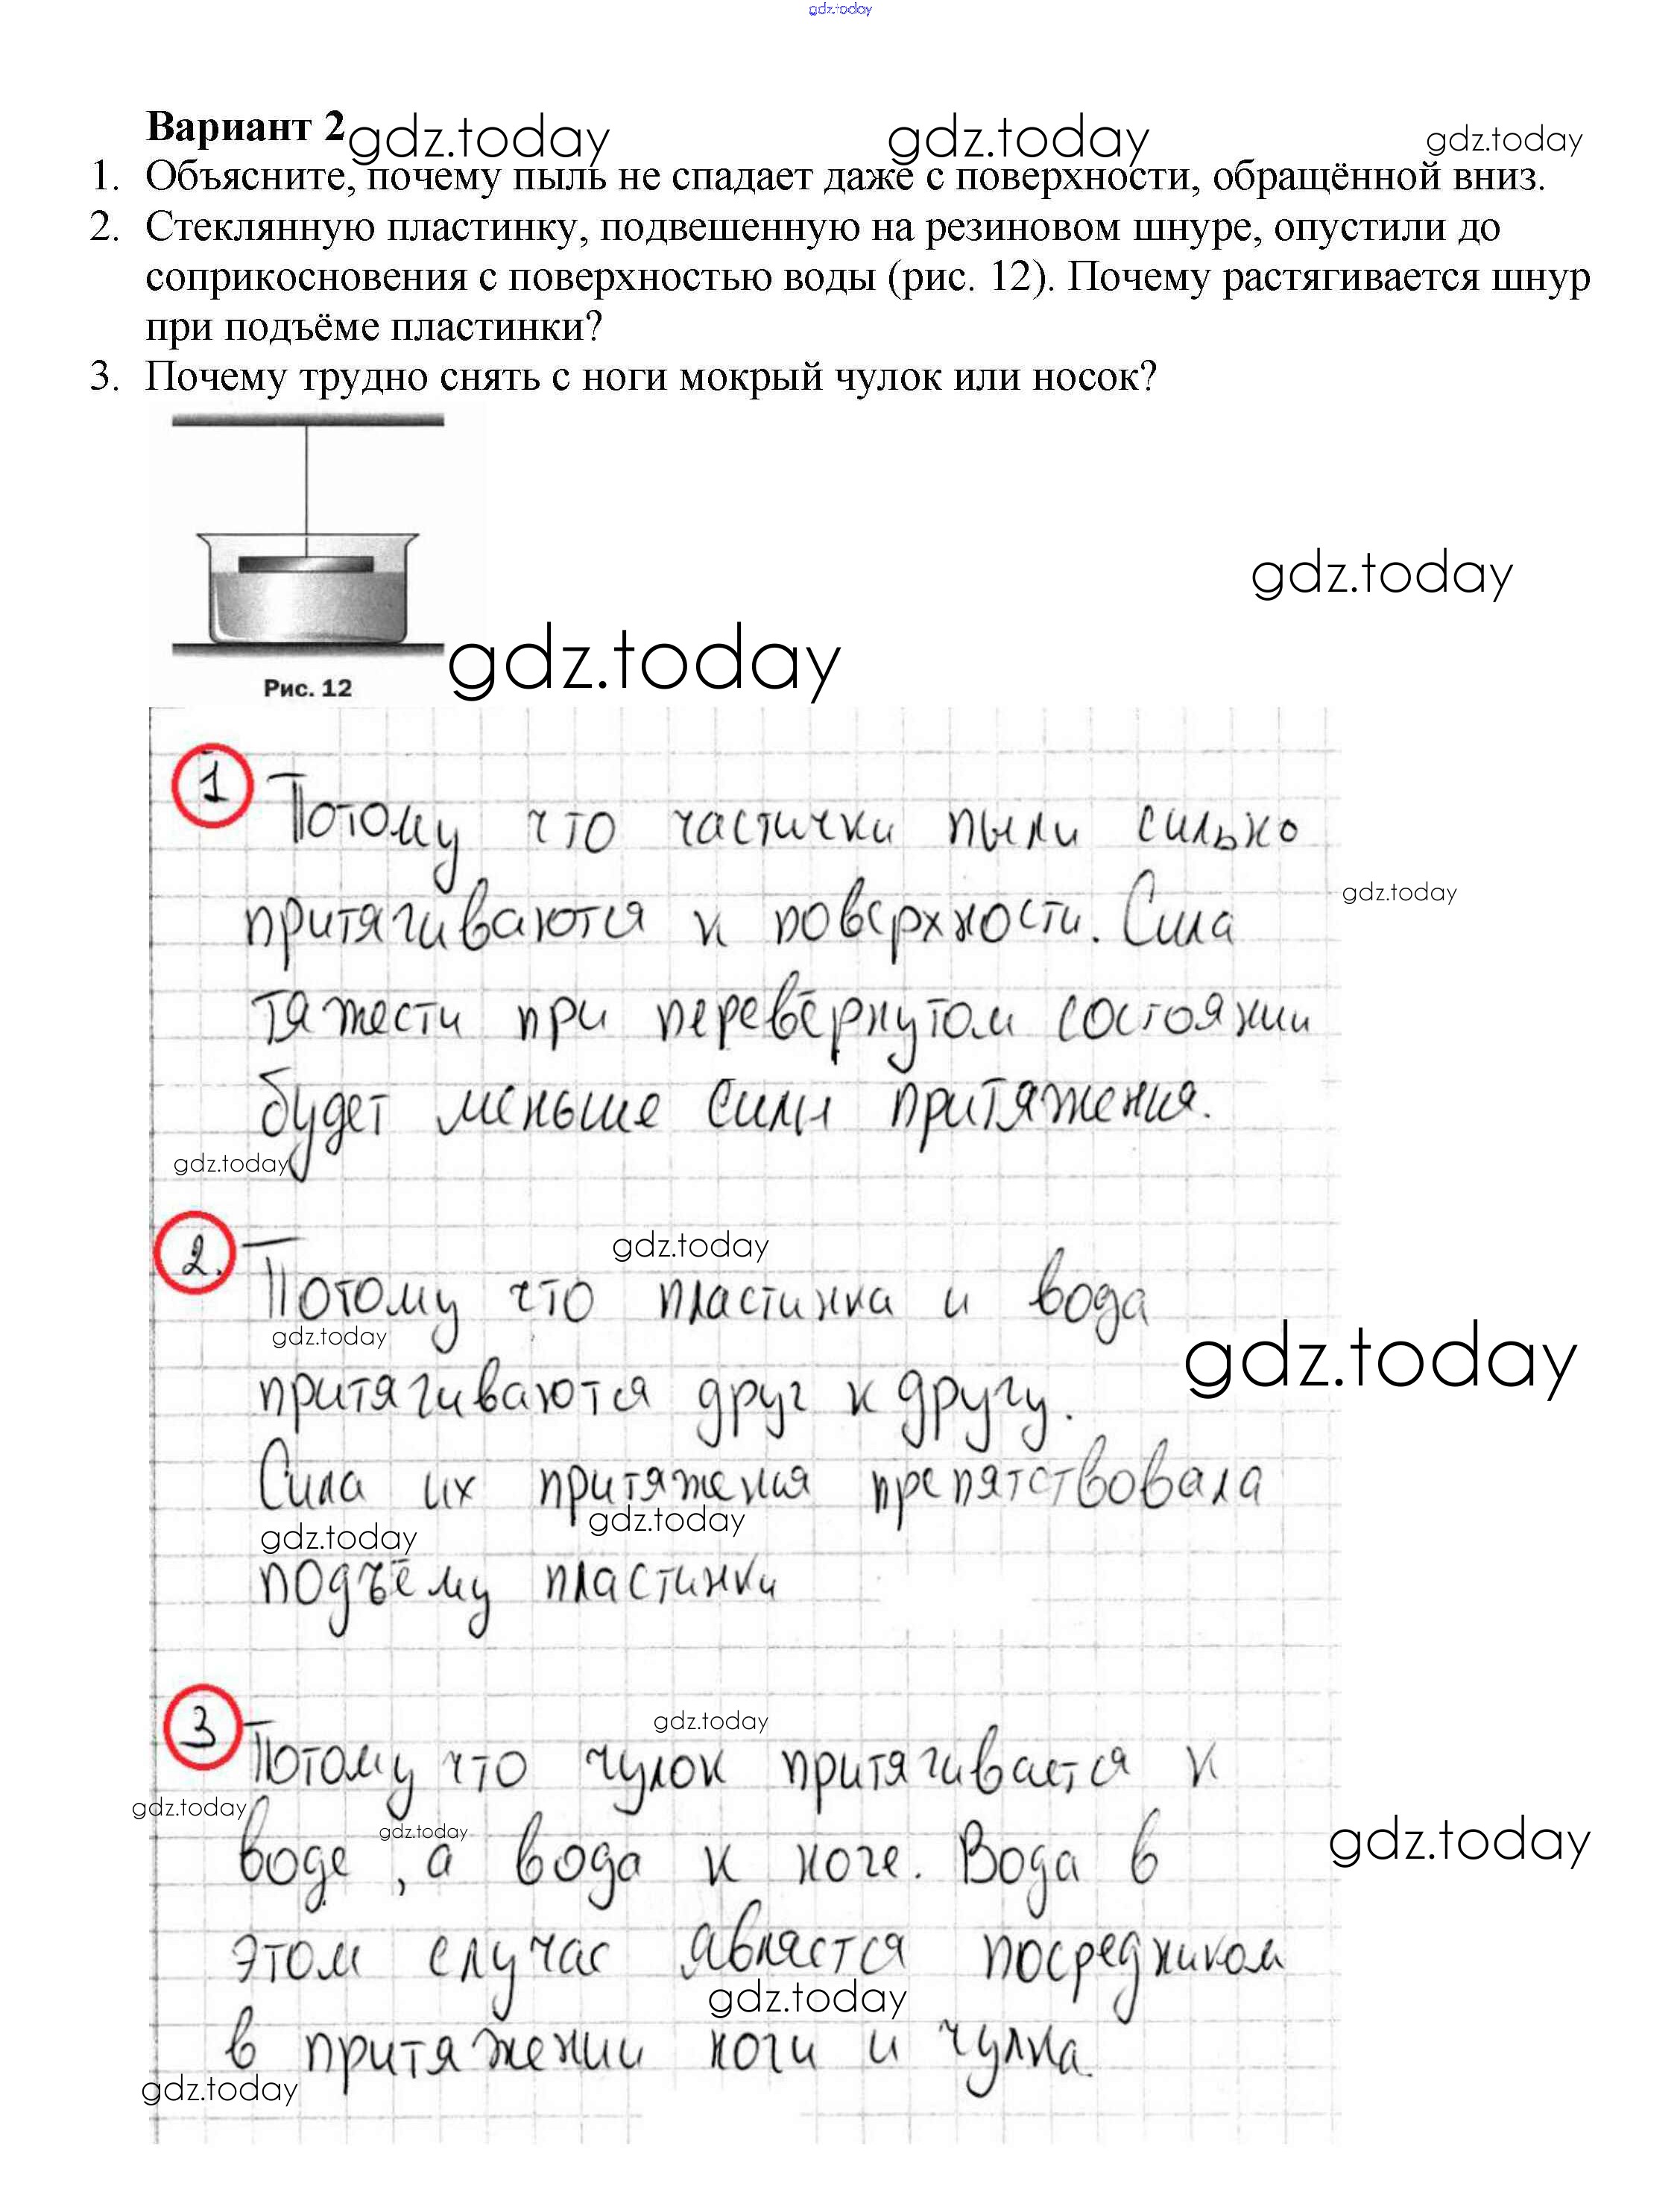 gdz.today
Вариант 2 gdz.today gdz.today gdz.today
1. Объясните, почему пыль не спадает даже с поверхности, обращённой вниз.
2. Стеклянную пластинку, подвешенную на резиновом шнуре, опустили до
соприкосновения с поверхностью воды (рис. 12). Почему растягивается шнур
при подъёме пластинки?
3. Почему трудно снять с ноги мокрый чулок или носок?
gdz.today
gdz.today
Рис. 12
1 Потому что частички пыли сильно
gdz.today
притягиваются к поверхности. Сила
тяжести при перевёрнутом состоянии
будет меньше силы притяжения.
gdz.today
gdz.today
2. Потому что пластинка и вода
gdz.today
gdz.today
притягиваются друг к другу.
Сила их притяжения препятствовала
gdz.today gdz.today
подъёму пластинки
gdz.today
3 Потому что чулок притягивается к
gdz.today gdz.today gdz.today
воде, а вода к ноге. Вода в
этом случае является посредником
gdz.today
в притяжении ноги и чулка.
gdz.today